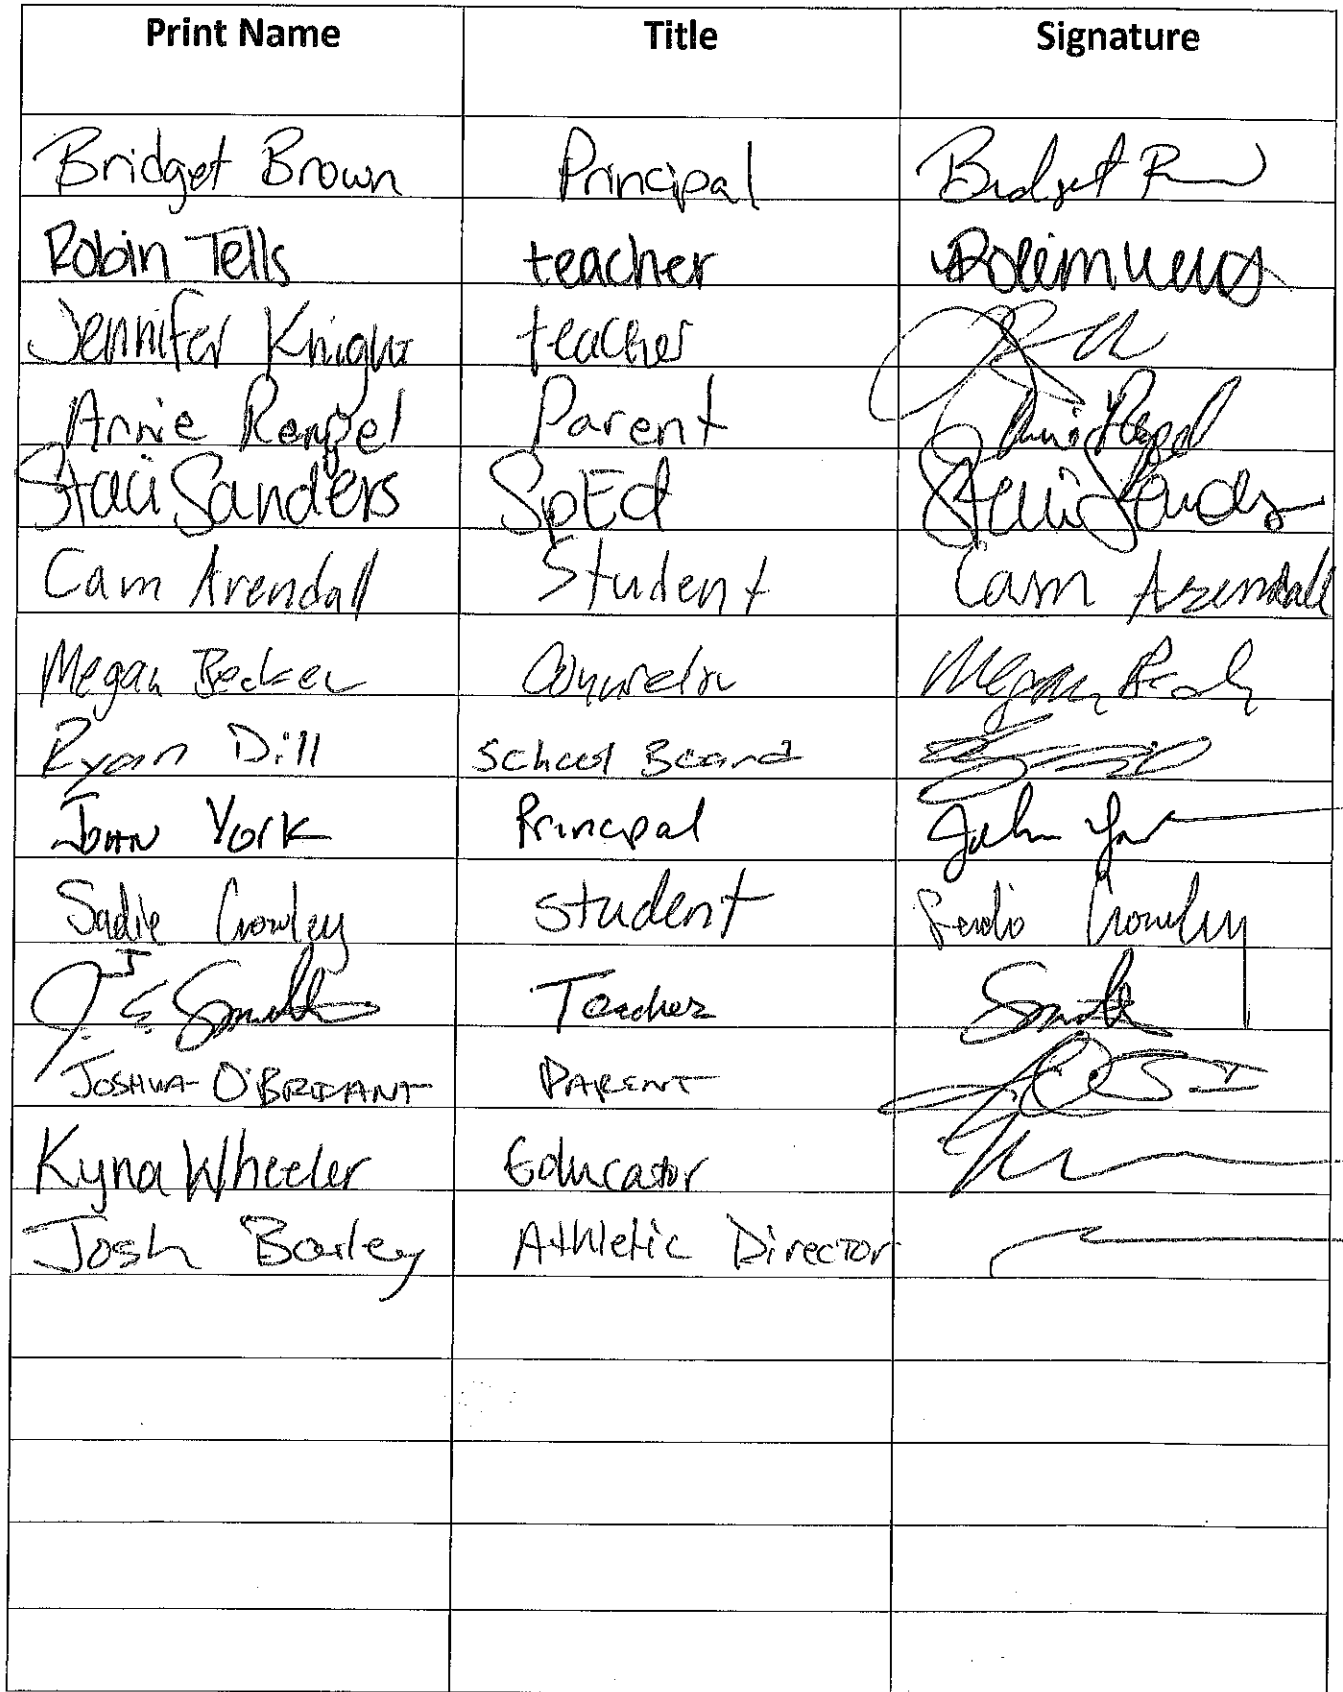 Print Name Title Signature
Bridget Brown Principal Bridget B
Robin Tells teacher
Jennifer Knight teacher
Annie Rengel Parent Annie Rengel
Staci Sanders SpEd Staci Sanders
Cam Arendall Student Cam Arendall
Megan Becker Counselor Megan
Ryan Dill School Board
John York Principal John York
Sadie Crowley student Sadie Crowley
J. E. Smith Teacher Smith
JOSHUA O'BRIANT PARENT
Kyna Wheeler Educator
Josh Barley Athletic Director